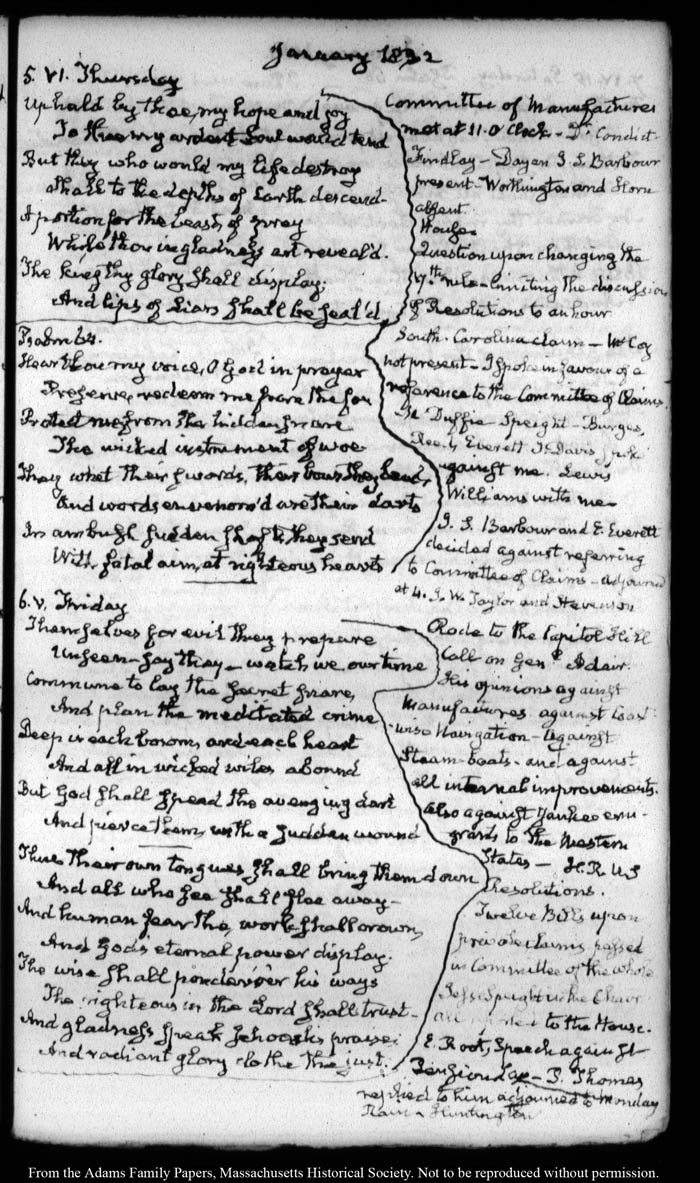 January 1832
5. VI. Thursday
Upheld by thee, my hope and joy
To thee my ardent soul would tend
But they who would my life destroy
Shall to the depths of Earth descend.
A portion for the beasts of prey
While thou in gladness art reveal'd.
The king thy glory shall display;
And lips of Liars shall be seal'd
Psalm 64.
Hear thou my voice, O God in prayer
Preserve, redeem me from the foe
Protect me from the hidden snare
The wicked instrument of woe
They whet their swords, their bows they bend,
And words envenom'd are their darts
In ambush sudden shafts they send
With fatal aim, at righteous hearts
Committee of Manufactures
met at 11. O'Clock - Dr. Condict
Findlay - Dayan J. S. Barbour
present - Worthington and Horn
absent.
House
Question upon changing the
17th rule - limiting the discussion
of Resolutions to an hour
South. Carolina claim - McCoy
not present - I spoke in favour of a
reference to the Committee of Claims.
Mc Duffie - Speight - Burges,
E. Everett J. Davis, spoke
against me. Lewis
Williams with me
J. S. Barbour and E. Everett
decided against referring
to Committee of Claims - adjourned
at 4. J. W. Taylor and Stevenson
6. V. Friday
Themselves for evil they prepare
Unseen - say they - watch we our time
Commune to lay the secret snare,
And plan the meditated crime
Deep is each bosom, and each heart
And all in wicked wiles abound
But God shall spread the avenging dart
And pierce them, with a sudden wound
Thus their own tongues, shall bring them down
And all who see shall flee away -
And human fear the, work shall crown,
And God's eternal power display.
The wise shall ponder o'er his ways
The righteous in the Lord shall trust -
And gladness speak Jehovah's praise;
And radiant glory clothe the just.
Rode to the Capitol Hill
Call on Genl. Adair.
His opinions against
Manufactures against Coast
wise Navigation - Against
Steam-boats - and against
all internal improvements.
Also against Yankee emi-
grants to the Western
States - H. R. U S
Resolutions.
Twelve Bills upon
private claims passed
in Committee of the whole
Jesse Speight in the Chair
all reported to the House.
E. Root, Speech against
Pension - P. Thomas
replied to him adjourned to Monday
Rain - Huntington
From the Adams Family Papers, Massachusetts Historical Society. Not to be reproduced without permission.